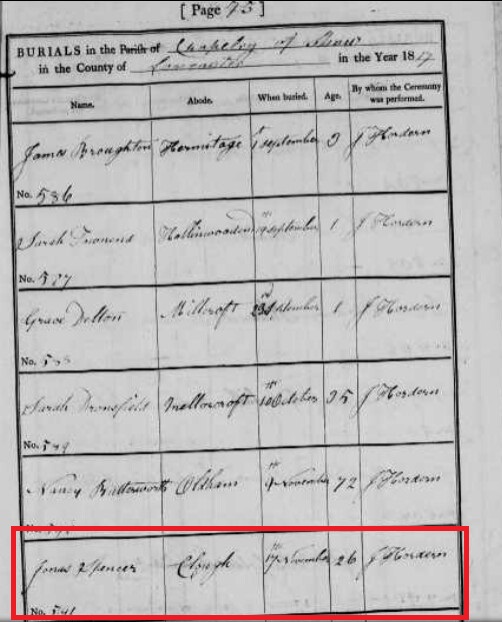 [ Page 45 ]
BURIALS in the Parish of Chapelry of Shaw
in the County of Lancaster in the Year 1817
Name. Abode. When buried. Age. By whom the Ceremony was performed.
James Broughton Hermitage 1st September 3 J Hordern
No. 586
Sarah Hollinwooden 19th September 1 J Hordern
No. 587
Grace Dolton Millcroft 23d September 1 J Hordern
No. 588
Sarah Dronsfield Mellowcroft 10th October 35 J Hordern
No. 589
Nancy Butterworth Oldham 9th November 72 J Hordern
No.
Jonas Spencer Clough 17th November 26 J Hordern
No. 591